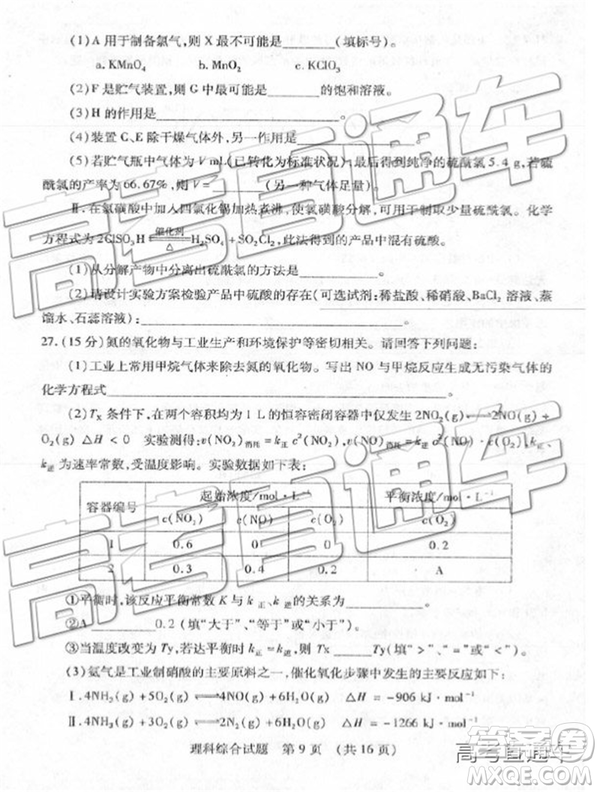 (1)A 用于制备氯气，则 X 最不可能是________(填标号)。
a. KMnO₄ b. MnO₂ c. KClO₃
(2)F 是贮气装置，则 G 中最可能是________的饱和溶液。
(3)H 的作用是________。
(4)装置 C、E 除干燥气体外，另一作用是________。
(5)若贮气瓶中气体为 V mL(已转化为标准状况)，最后得到纯净的硫酰氯 5.4 g，若硫
酰氯的产率为 66.67%，则 V=________(另一种气体足量)。
Ⅱ. 在氯磺酸中加入四氯化锡加热煮沸，使氯磺酸分解，可用于制取少量硫酰氯。化学
方程式为 2ClSO₃H ⇌(催化剂 △) H₂SO₄+SO₂Cl₂，此法得到的产品中混有硫酸。
(1)从分解产物中分离出硫酰氯的方法是________。
(2)请设计实验方案检验产品中硫酸的存在(可选试剂：稀盐酸、稀硝酸、BaCl₂ 溶液、蒸
馏水、石蕊溶液)：________。
27.(15 分)氮的氧化物与工业生产和环境保护等密切相关。请回答下列问题：
(1)工业上常用甲烷气体来除去氮的氧化物。写出 NO 与甲烷反应生成无污染气体的
化学方程式________
(2)Tx 条件下，在两个容积均为 1 L 的恒容密闭容器中仅发生 2NO₂(g)⇌2NO(g)+
O₂(g) △H<0 实验测得：v(NO₂)消耗=k正 c²(NO₂)，v(NO)消耗=k逆 c²(NO)·c(O₂)，k正、
k逆 为速率常数，受温度影响。实验数据如下表：
容器编号 起始浓度/mol·L⁻¹ 平衡浓度/mol·L⁻¹
c(NO₂) c(NO) c(O₂) c(O₂)
1 0.6 0 0 0.2
2 0.3 0.4 0.2 A
①平衡时，该反应平衡常数 K 与 k正、k逆 的关系为________。
②A________0.2(填“大于”、“等于”或“小于”)。
③当温度改变为 Ty，若达平衡时 k正=k逆，则 Tx________Ty(填“>”、“<”或“=”)。
(3)氨气是工业制硝酸的主要原料之一，催化氧化步骤中发生的反应如下：
Ⅰ. 4NH₃(g)+5O₂(g)⇌4NO(g)+6H₂O(g) △H=-906 kJ·mol⁻¹
Ⅱ. 4NH₃(g)+3O₂(g)⇌2N₂(g)+6H₂O(g) △H=-1266 kJ·mol⁻¹
理科综合试题 第 9 页 (共 16 页)
高考直通车
高考直通车
高考直通车
答案圈
MXQE.COM